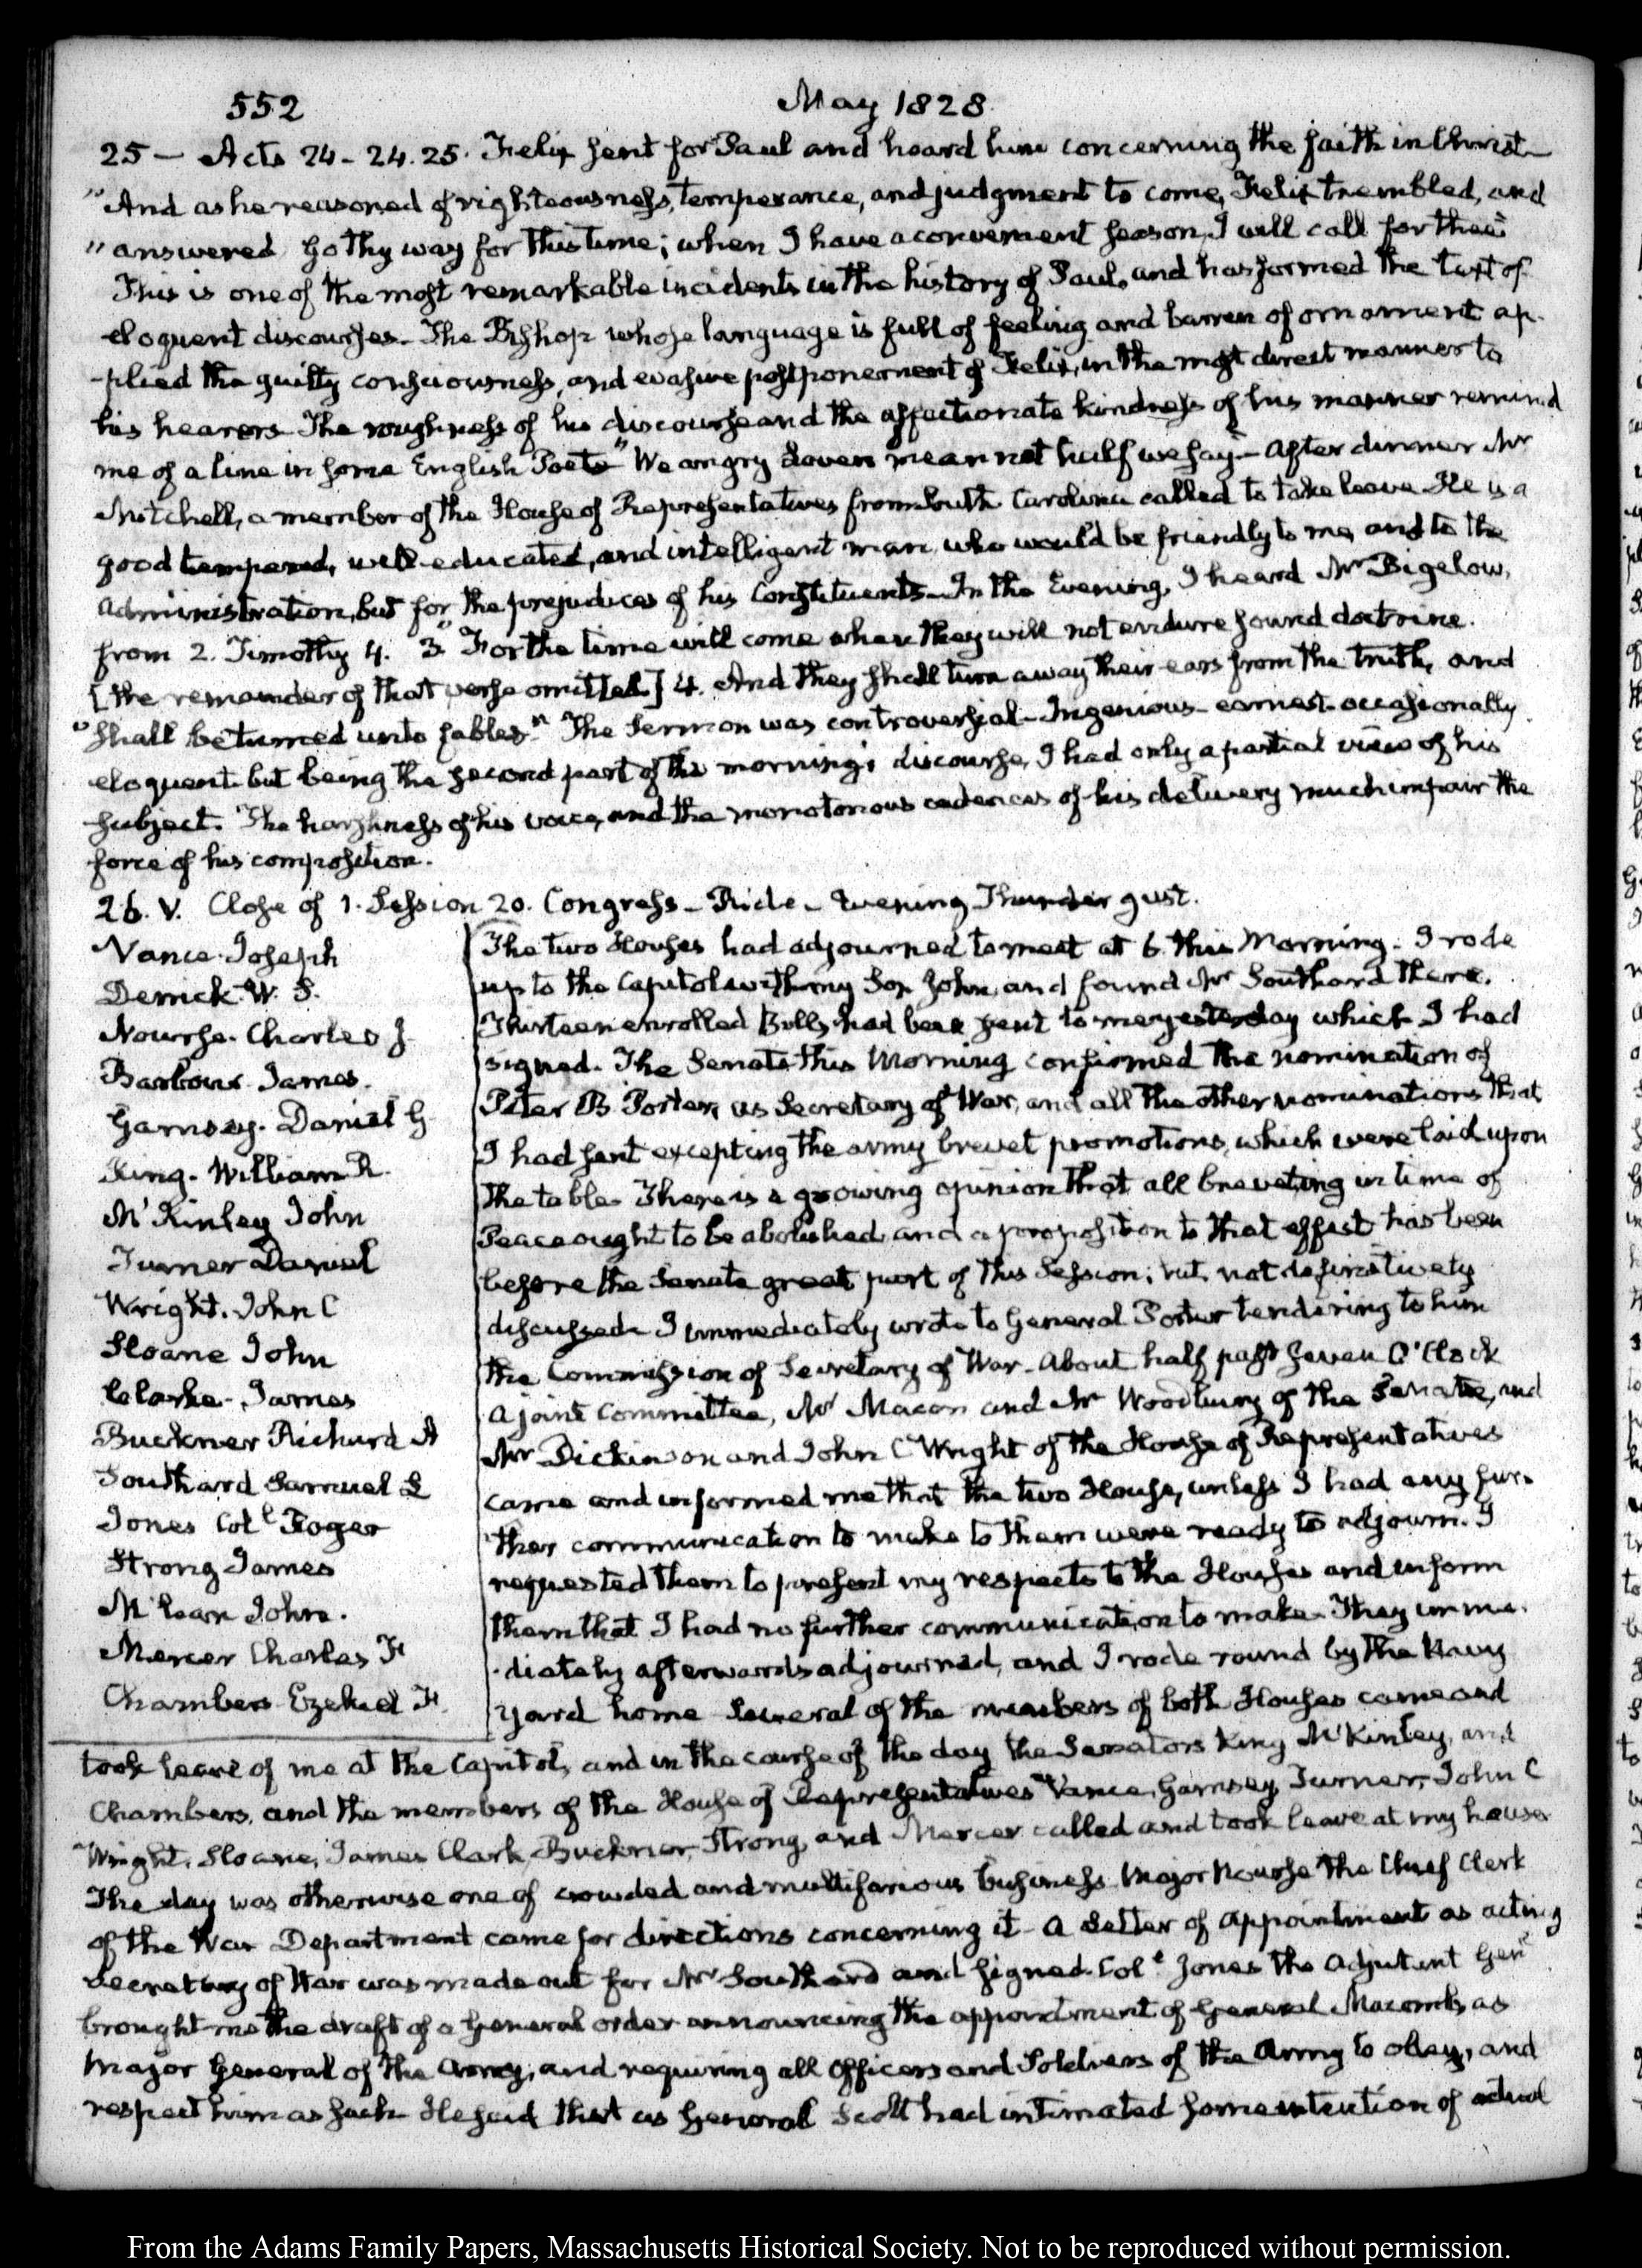 552
May 1828
25 — Acts 24 - 24. 25. Felix sent for Paul and heard him concerning the faith in Christ
"And as he reasoned of righteousness, temperance, and judgment to come, Felix trembled, and
"answered Go thy way for this time; when I have a convenient season, I will call for thee"
This is one of the most remarkable incidents in the history of Paul, and has formed the text of
eloquent discourses. The Bishop whose language is full of feeling and barren of ornament ap-
-plied the guilty consciousness, and evasive postponement of Felix, in the most direct manner to
his hearers The roughness of his discourse and the affectionate kindness of his manner remind
me of a line in some English Poets "We angry mean not half we say"— After dinner Mr
Mitchell, a member of the House of Representatives from South Carolina called to take leave He is a
good tempered, well-educated, and intelligent man, who would be friendly to me, and to the
Administration, but for the prejudices of his Constituents—In the Evening, I heard Mr Bigelow,
from 2. Timothy 4. 3 "For the time will come when they will not endure sound doctrine.
[the remainder of that verse omitted] 4. And they shall turn away their ears from the truth, and
"shall be turned unto fables." The Sermon was controversial—Ingenious—earnest—occasionally
eloquent but being the second part of the morning's discourse, I had only a partial view of his
subject. The harshness of his voice, and the monotonous cadences of his delivery much impair the
force of his composition.
26. V. Close of 1. Session 20. Congress — Ride — Evening Thunder gust.
Vance. Joseph
Derrick. W. S.
Nourse. Charles J
Barbour James.
Garnsey. Daniel G
King. William R.
McKinley John
Turner Daniel
Wright. John C
Sloane John
Clarke - James
Buckner Richard A
Southard Samuel L
Jones Coll Roger
Strong James
McLean John.
Mercer Charles F
Chambers Ezekiel F.
The two Houses had adjourned to meet at 6 this Morning. I rode
up to the Capitol with my Son John, and found Mr Southard there.
Thirteen enrolled Bills had been sent to me yesterday which I had
signed. The Senate this Morning confirmed the nomination of
Peter B. Porter, as Secretary of War, and all the other nominations that
I had sent excepting the army brevet promotions, which were laid upon
the table. There is a growing opinion that all breveting in time of
Peace ought to be abolished, and a proposition to that effect has been
before the Senate great part of this Session; but not definitively
discussed. I immediately wrote to General Porter tendering to him
the Commission of Secretary of War. About half past seven O'Clock
a joint Committee, Mr Macon and Mr Woodbury of the Senate, and
Mr Dickinson and John C Wright of the House of Representatives
came and informed me that the two House, unless I had any fur-
ther communication to make to them were ready to adjourn. I
requested them to present my respects to the Houses and inform
them that I had no further communication to make. They imme-
-diately afterwards adjourned, and I rode round by the Navy
Yard home Several of the members of both Houses came and
took leave of me at the Capitol, and in the course of the day the Senators King McKinley, and
Chambers, and the members of the House of Representatives Vance, Garnsey, Turner, John C
Wright, Sloane, James Clark, Buckner, Strong, and Mercer called and took leave at my house
The day was otherwise one of crowded and multifarious business. Major Nourse the Chief Clerk
of the War Department came for directions concerning it— a Letter of appointment as acting
Secretary of War was made out for Mr Southard and signed. Coll Jones the Adjutant Genl
brought me the draft of a General order announcing the appointment of General Macomb, as
Major General of the Army, and requiring all Officers and Soldiers of the Army to obey, and
respect him as such He said that as General Scott had intimated some intention of actual
From the Adams Family Papers, Massachusetts Historical Society. Not to be reproduced without permission.